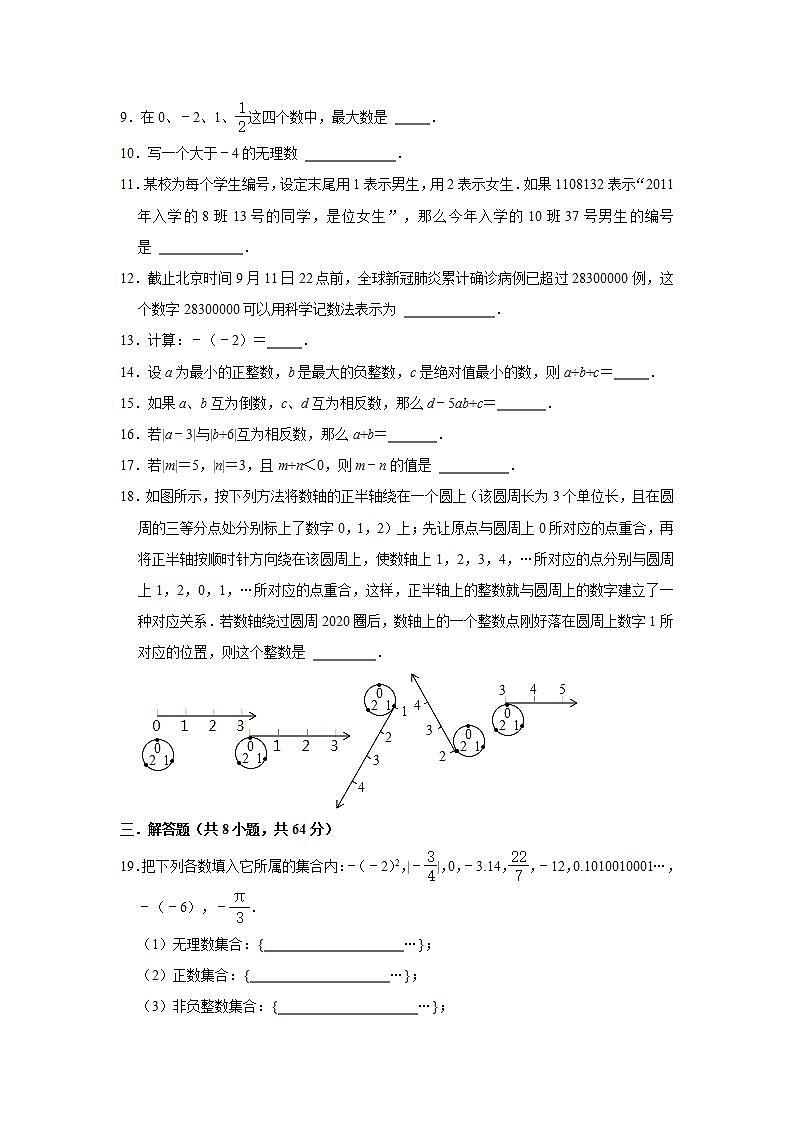 9．在 0、﹣2、1、1/2这四个数中，最大数是 _____．
10．写一个大于﹣4的无理数 _____________．
11．某校为每个学生编号，设定末尾用1表示男生，用2表示女生．如果1108132表示“2011
年入学的 8 班 13 号的同学，是位女生”，那么今年入学的 10 班 37 号男生的编号
是 ____________．
12．截止北京时间9月11日22点前，全球新冠肺炎累计确诊病例已超过28300000例，这
个数字28300000可以用科学记数法表示为 _____________．
13．计算：﹣（﹣2）＝_____．
14．设a为最小的正整数，b是最大的负整数，c是绝对值最小的数，则a+b+c＝_____．
15．如果a、b互为倒数，c、d互为相反数，那么d﹣5ab+c＝_______．
16．若|a﹣3|与|b+6|互为相反数，那么a+b＝_______．
17．若|m|＝5，|n|＝3，且m+n＜0，则m﹣n的值是 __________．
18．如图所示，按下列方法将数轴的正半轴绕在一个圆上（该圆周长为3个单位长，且在圆
周的三等分点处分别标上了数字0，1，2）上；先让原点与圆周上0所对应的点重合，再
将正半轴按顺时针方向绕在该圆周上，使数轴上1，2，3，4，…所对应的点分别与圆周
上1，2，0，1，…所对应的点重合，这样，正半轴上的整数就与圆周上的数字建立了一
种对应关系．若数轴绕过圆周2020圈后，数轴上的一个整数点刚好落在圆周上数字1所
对应的位置，则这个整数是 _________．
0 1 2 3
0
2 1
0 1 2 3
2 1
0
2 1 1
2
3
4
4
3
2
0
2 1
3 4 5
0
2 1
三．解答题（共8小题，共64分）
19．把下列各数填入它所属的集合内：﹣（﹣2）²，|﹣3/4|，0，﹣3.14，22/7，﹣12，0.1010010001…，
﹣（﹣6），﹣π/3．
（1）无理数集合：{____________________…}；
（2）正数集合：{____________________…}；
（3）非负整数集合：{____________________…}；